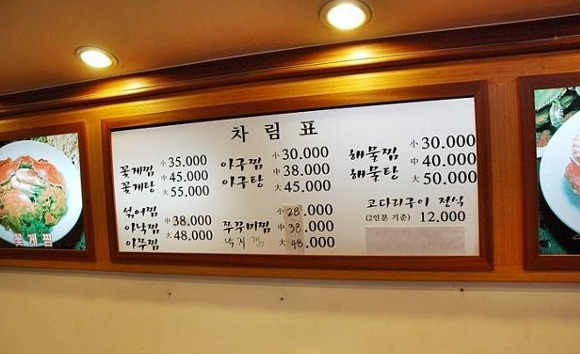 차림표
꽃게찜 小 35.000
꽃게탕 中 45.000
大 55.000
섞어찜
아낙찜 中 38.000
아쭈찜 大 48.000
아구찜 小 30.000
아구탕 中 38.000
大 45.000
小 28.000
쭈꾸미찜 中 38.000
낙지찜 大 48.000
해물찜 小 30.000
해물탕 中 40.000
大 50.000
코다리구이 정식
(2인분 기준) 12.000
꽃게찜